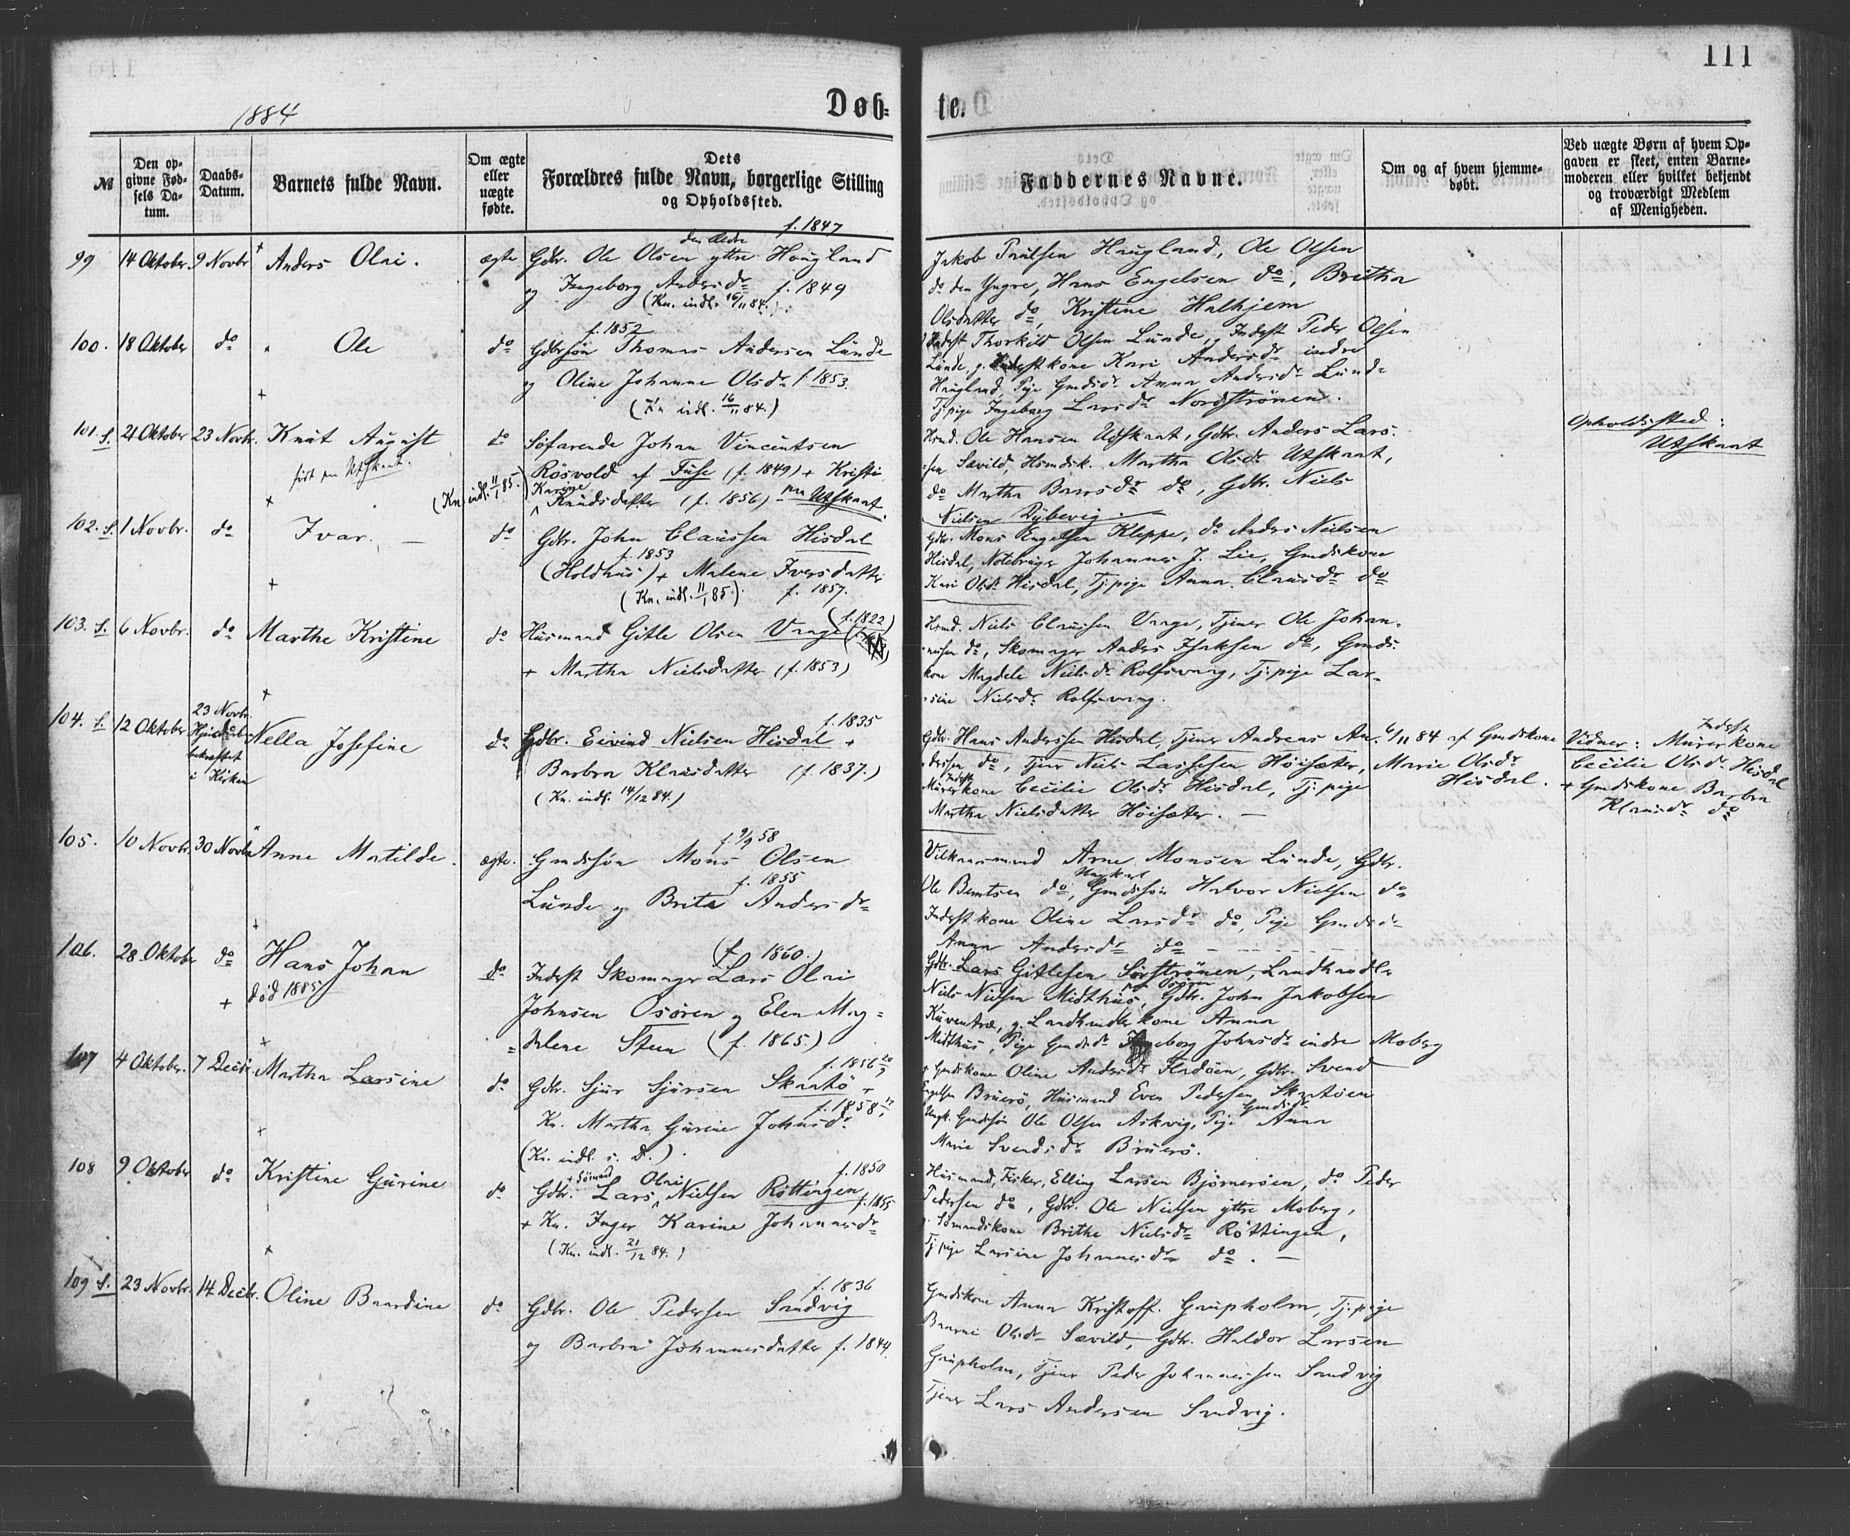 111
1884
Døb-
te.
№
Den op-
givne Fød-
sels Da-
tum.
Daabs-
Datum.
Barnets fulde Navn.
Om ægte
eller
uægte
fødte.
Dets
Forældres fulde Navn, borgerlige Stilling
og Opholdssted.
Faddernes Navne.
Om og af hvem hjemme-
døbt.
Ved uægte Børn af hvem Op-
gaven er skeet, enten Barne-
moderen eller hvilket bekjendt
og troværdigt Medlem
af Menigheden.
99 14 Oktober 9 Novbr + Anders Olai. ægte
den Ældre f. 1847
Gdbr. Ole Olsen yttre Haugland
og Ingeborg Andersdr f. 1849
(Kn. indl. 16/11 84.)
Jakob Paulsen Haugland, Ole Olsen
do den Yngre, Hans Engelsen do, Britha
Olsdatter do, Kristine Halhjem
100. 18 Oktober do Ole do
f. 1852
Gdbrsøn Thomas Andersen Lunde
og Oline Johanne Olsdr f. 1853.
(Kn indl. 16/11 84.)
Indest Thorkild Olsen Lunde, Inderst Peder Olsen
Lunde, g. Inderstkone Kari Andersdr indre
Haugland, Pige Gmdsdr Anna Andersdr Lunde
Tj.pige Ingeborg Larsdr Nordstrønen.
+
101. S. 21 Oktober 23 Novbr. Knut August do
født paa Utskaat.
Søfarende Johan Vincentsen
Røsvold af Fuse (f. 1849) + Kristi
Karine
Knudsdatter (f. 1856) paa Utskaat.
(Kn. indl. 11/1 85.)
Hmd. Ole Hansen Utskaat, Gdbr. Anders Lars-
sen Sævild, Hsmdsk. Martha Olsdr Utskaat,
do Martha Baarsdr do, Gdbr. Niels
Nielsen Dybevig.
Opholdssted:
Utskaat
+
102. S. 1 Novbr. do Ivar. — do
Gdbr. John Claussen Hisdal
f. 1853
(Holdhus) + Malene Iversdatter
(Kn. indl. 11/1 85.) f. 1857.
Gdbr. Mons Engelsen Kleppe, do Anders Nielsen
Hisdal, Notebruger Johannes J. Lie, Gmdskone
Kari Olsdr Hisdal, Tj.pige Anna Clausdr do
+
103. S. 6 Novbr. do Marthe Kristine do
(f. 1822)
Husmand Gitle Olsen Vaage
+ Martha Nielsdatter (f. 1853)
Hsmd. Niels Claussen Vaage, Tjener Ole Johan-
nesen do, Skomager Anders Isaksen do, Gmds-
kone Magdele Nielsdr Rolfsvaag, Tj.pige Lar-
sine Nielsdr Rolfsvaag.
+
104. S. 12 Oktober 23 Novbr.
Hjemdaab
bekræftet
i Kirken
Nella Josefine do
f. 1835
Gdbr. Eivind Nielsen Hisdal +
Barbra Klausdatter (f. 1837.)
(Kn. indl. 14/12 84.)
Gdbr. Hans Anderssen Hisdal, Tjener Andreas An-
derssen do, Tjener Niels Lassesen Høisæter,
Inderst
Murerkone Cecilie Olsdr Hisdal, Tj.pige
Martha Nielsdatter Høisæter. —
6/11 84 af Gmdskone
Marie Olsdr
Hisdal.
Inderst
Vidner: Murerkone
Cecilie Olsdr Hisdal
+ Gmdskone Barbra
Klausdr do
105. 10 Novbr. 30 Novbr. Anne Matilde. ægte.
f. 9/9 58
Gmdssøn Mons Olsen
f. 1855
Lunde og Brita Andersdr
Vilkaarsmand Arne Monsen Lunde, Gdbr.
Ole Berntsen do, Ungkarl Gmdssøn Halvor Nielsen do
Inderstkone Oline Larsdr do, Pige Gmdsdr
Anna Andersdr do
+
106. 28 Oktober do Hans Johan do
+ død 1885
(f. 1860.)
Inderst Skomager Lars Olai
Johnsen Osøren og Elen Mag-
dalene Steen (f. 1865.)
Gdbr. Lars Gitlesen Sørstrønen, Landhandler
Niels Nielsen Midthus, Gdbr. John Jakobsen
Kuventræ, g. Landhandlerkone Anna
Midthus, Pige Gmdsdr Ingeborg Johnsdr indre Moberg
+
107 4 Oktober. 7 Decbr. Martha Larsine do
f. 1856
Gdbr. Sjur Sjursen Skaatø +
f. 1858
Kn. Martha Gurine Johnsdr
(Kn. indl. s. D.)
+ Gmdskone Oline Andersdr Flatøen, Gdbr. Svend
Engelsen Bruerø, Husmand Even Pedersen Skaatøen
Ungk. Gmdssøn Ole Olsen Askvig, Pige Gmdsdr Anna
Marie Svendsdr Bruerø.
108 9 Oktober do Kristine Gurine do
+ Sømand Olai f. 1850
Gdbr. Lars Nielsen Røttingen
f. 1855
+ Kn. Inger Karine Johannesdr
(Kn. indl. 21/12 84.)
Husmand, Fisker, Elling Larsen Bjørnerøen, do Peder
Pedersen do, Gdbr. Ole Nielsen yttre Moberg,
g. Sømandskone Brithe Nielsdr Røttingen,
Tj.pige Larsine Johannesdr do. —
+
109 S. 23 Novbr. 14 Decbr. Oline Baardine do
f. 1836
Gdbr. Ole Pedersen Sandvig
og Barbra Johannesdatter f. 1844.
Gmdskone Anna Kristoff. Gripholm, Tj.pige
Baarni Olsdr Sævild, Gdbr. Haldor Larsen
Gripholm, Tjener Peder Johannessen Sandvig
Tjener Lars Andersen Sandvig.